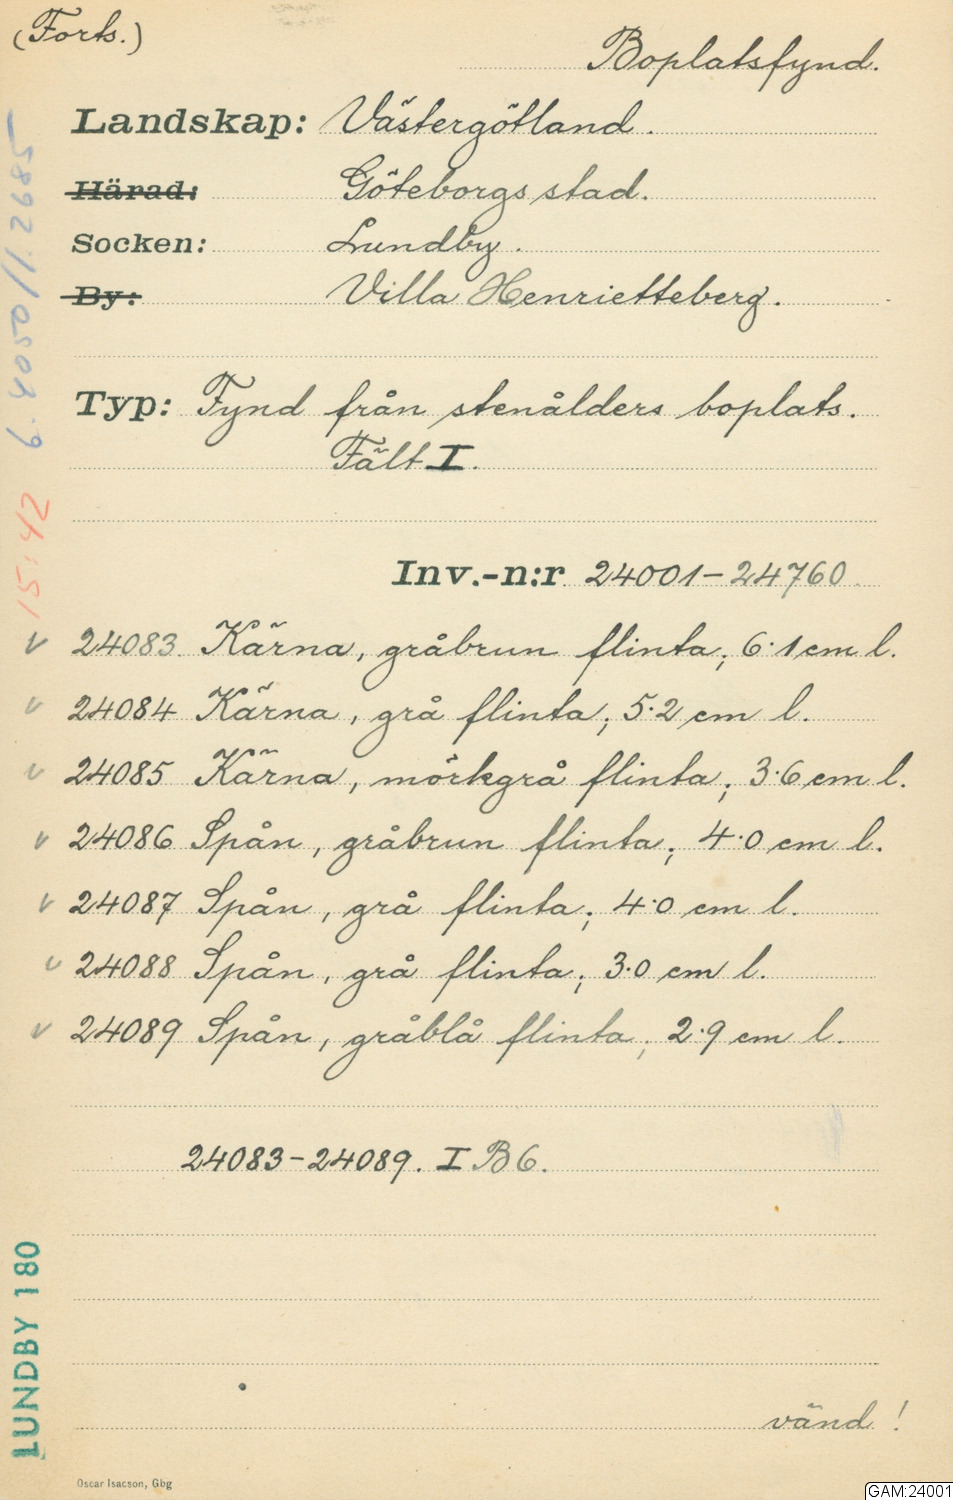 (Forts.)
Boplatsfynd.
Landskap: Västergötland.
Härad: Göteborgs stad.
Socken: Lundby.
By: Villa Henrietteberg.
Typ: Fynd från stenålders boplats.
Fält I.
Inv.-n:r 24001-24760
v 24083 Kärna, gråbrun flinta; 6·1 cm l.
v 24084 Kärna, grå flinta; 5·2 cm l.
v 24085 Kärna, mörkgrå flinta; 3·6 cm l.
v 24086 Spån, gråbrun flinta; 4·0 cm l.
v 24087 Spån, grå flinta; 4·0 cm l.
v 24088 Spån, grå flinta; 3·0 cm l.
v 24089 Spån, gråblå flinta; 2·9 cm l.
24083-24089. I B6.
vänd!
Oscar Isacson, Gbg
15:42
LUNDBY 180
GAM:24001